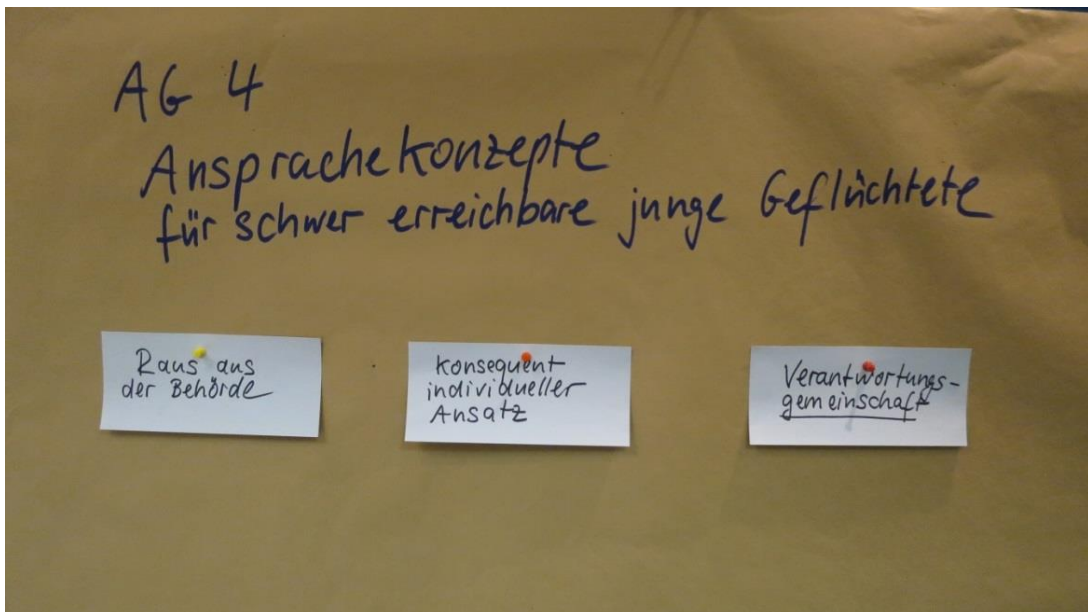 AG 4
Ansprachekonzepte
für schwer erreichbare junge Geflüchtete
Raus aus
der Behörde
Konsequent
individueller
Ansatz
Verantwortungs-
gemeinschaft